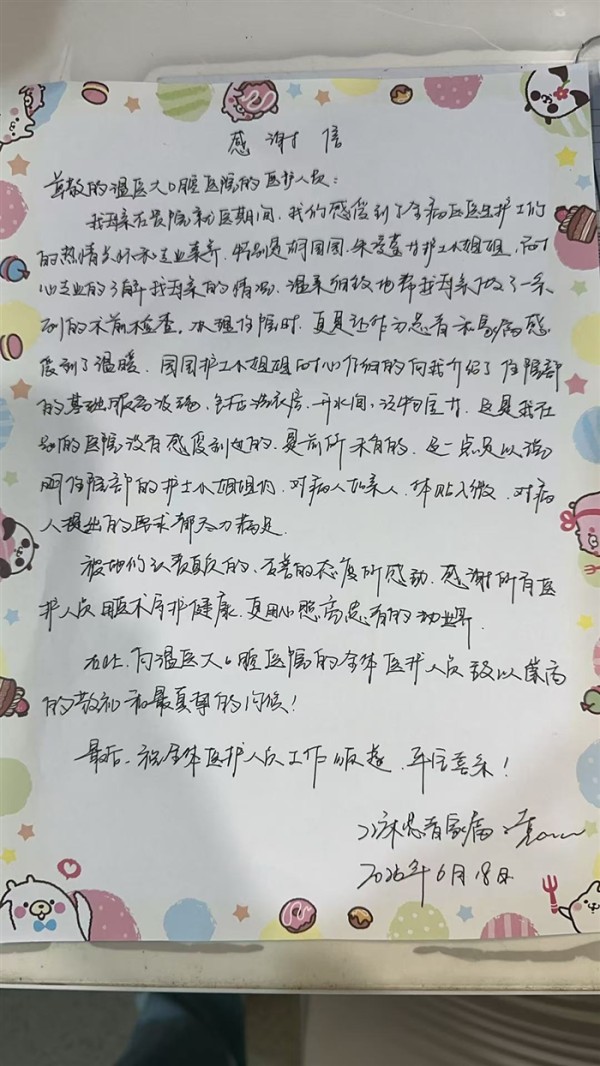 感谢信
尊敬的温医大口腔医院的医护人员：
我母亲在贵院就医期间，我们感受到了全病区医生护士们
的热情关怀和专业素养，特别是胡国国、朱 护士小姐姐，耐
心专业的了解我母亲的情况，温柔细致地帮我母亲做了一系
列的术前检查。办理住院时，真真让作为患者和家属感
受到了温暖，国国护士小姐姐耐心仔细的向我介绍了住院部
的基础服务设施，包括洗衣房、开水间、 ，这是我在
别的医院没有感受到过的，是前所未有的，这一点足以说
明住院部的护士小姐姐们，对病人如亲人，体贴入微，对病
人提出的要求都尽力满足。
被她们认真负责的、友善的态度所感动，感谢所有医
护人员用医术守护健康，更用心照亮患者的 。
在此，向温医大口腔医院的全体医护人员致以崇高
的敬礼和最真挚的问候！
最后，祝全体医护人员工作顺遂，平安喜乐！
床患者家属
2026年6月18日